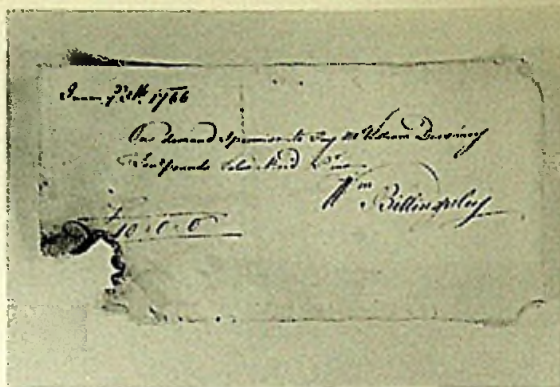 1766
On demand I promise to Pay Mr William Duesbury
Ten pounds Value
Wm Billingsley
£
10 = 0 = 0